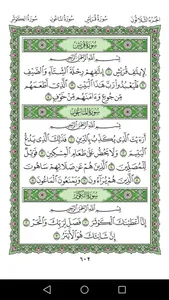 سُورَةُ قُرَيْشٍ
بِسْمِ ٱللَّهِ ٱلرَّحْمَٰنِ ٱلرَّحِيمِ
لِإِيلَٰفِ قُرَيْشٍ ۝١ إِۦلَٰفِهِمْ رِحْلَةَ ٱلشِّتَآءِ وَٱلصَّيْفِ
۝٢ فَلْيَعْبُدُوا۟ رَبَّ هَٰذَا ٱلْبَيْتِ ۝٣ ٱلَّذِىٓ أَطْعَمَهُم
مِّن جُوعٍ وَءَامَنَهُم مِّنْ خَوْفٍۭ ۝٤
سُورَةُ المَاعُونِ
بِسْمِ ٱللَّهِ ٱلرَّحْمَٰنِ ٱلرَّحِيمِ
أَرَءَيْتَ ٱلَّذِى يُكَذِّبُ بِٱلدِّينِ ۝١ فَذَٰلِكَ ٱلَّذِى يَدُعُّ
ٱلْيَتِيمَ ۝٢ وَلَا يَحُضُّ عَلَىٰ طَعَامِ ٱلْمِسْكِينِ ۝٣ فَوَيْلٌ
لِّلْمُصَلِّينَ ۝٤ ٱلَّذِينَ هُمْ عَن صَلَاتِهِمْ سَاهُونَ
۝٥ ٱلَّذِينَ هُمْ يُرَآءُونَ ۝٦ وَيَمْنَعُونَ ٱلْمَاعُونَ ۝٧
سُورَةُ الكَوْثَرِ
بِسْمِ ٱللَّهِ ٱلرَّحْمَٰنِ ٱلرَّحِيمِ
إِنَّآ أَعْطَيْنَٰكَ ٱلْكَوْثَرَ ۝١ فَصَلِّ لِرَبِّكَ وَٱنْحَرْ
۝٢ إِنَّ شَانِئَكَ هُوَ ٱلْأَبْتَرُ ۝٣
٦٠٢